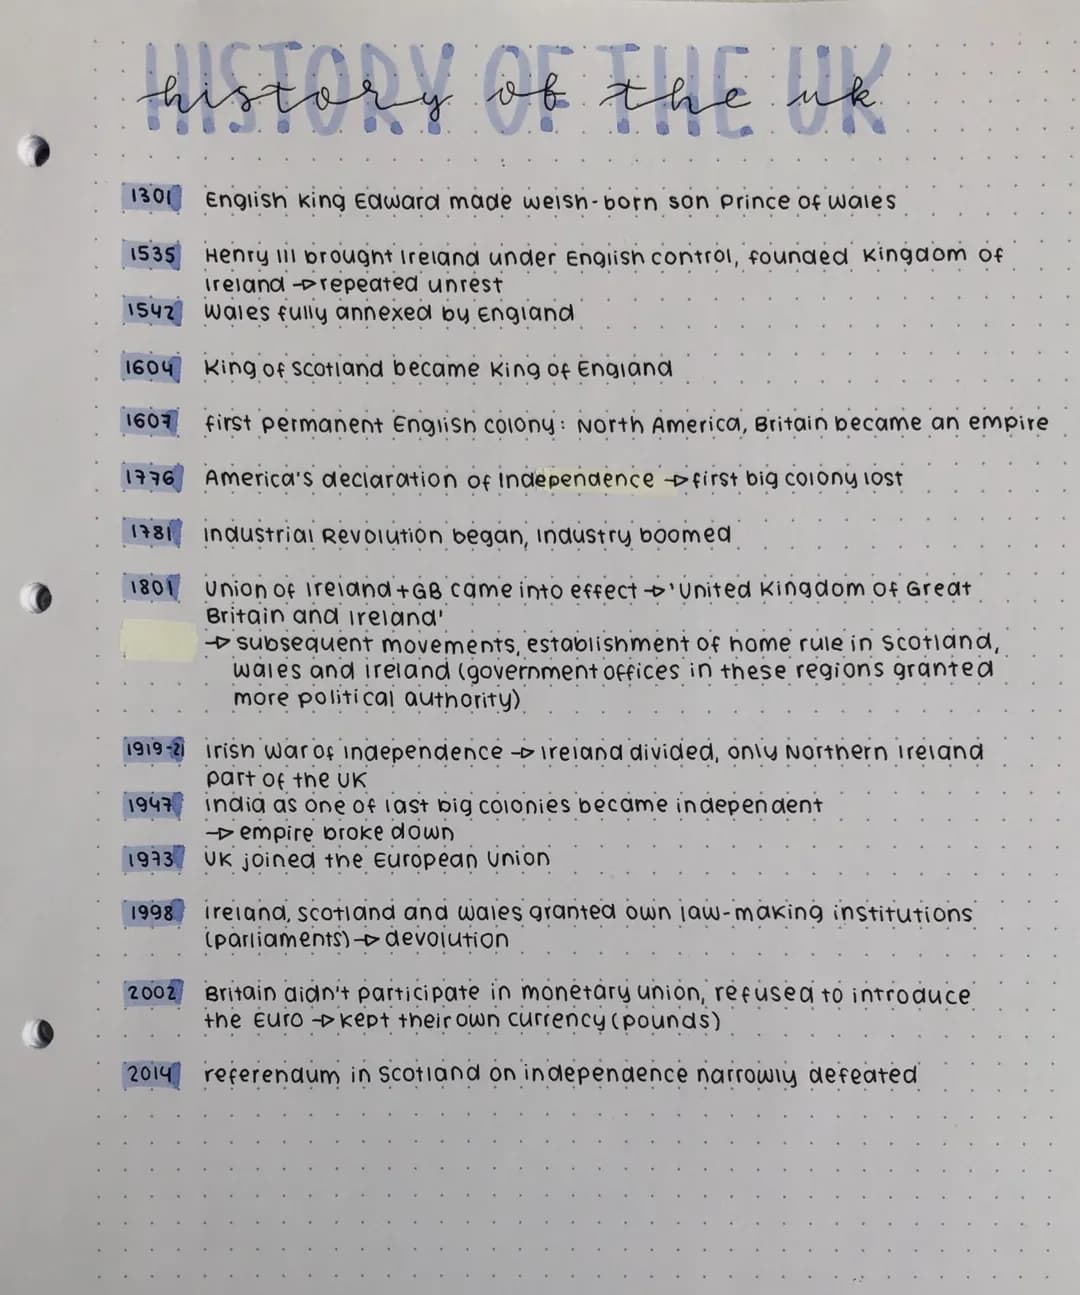 HISTORY OF THE UK
history of the uk
1301 English king Edward made welsh-born son Prince of Wales
1535 Henry III brought Ireland under English control, founded Kingdom of
Ireland → repeated unrest
1542 Wales fully annexed by England
1604 King of Scotland became King of England
1607 first permanent English colony: North America, Britain became an empire
1776 America's declaration of independence → first big colony lost
1781 industrial Revolution began, industry boomed
1801 Union of Ireland + GB came into effect → 'United Kingdom of Great
Britain and Ireland'
→ subsequent movements, establishment of home rule in Scotland,
Wales and Ireland (government offices in these regions granted
more political authority)
1919-21 Irish War of Independence → Ireland divided, only Northern Ireland
part of the UK
1947 India as one of last big colonies became independent
→ empire broke down
1973 UK joined the European Union
1998 Ireland, Scotland and Wales granted own law-making institutions
(parliaments) → devolution
2002 Britain didn't participate in monetary union, refused to introduce
the Euro → kept their own currency (pounds)
2014 referendum in Scotland on independence narrowly defeated